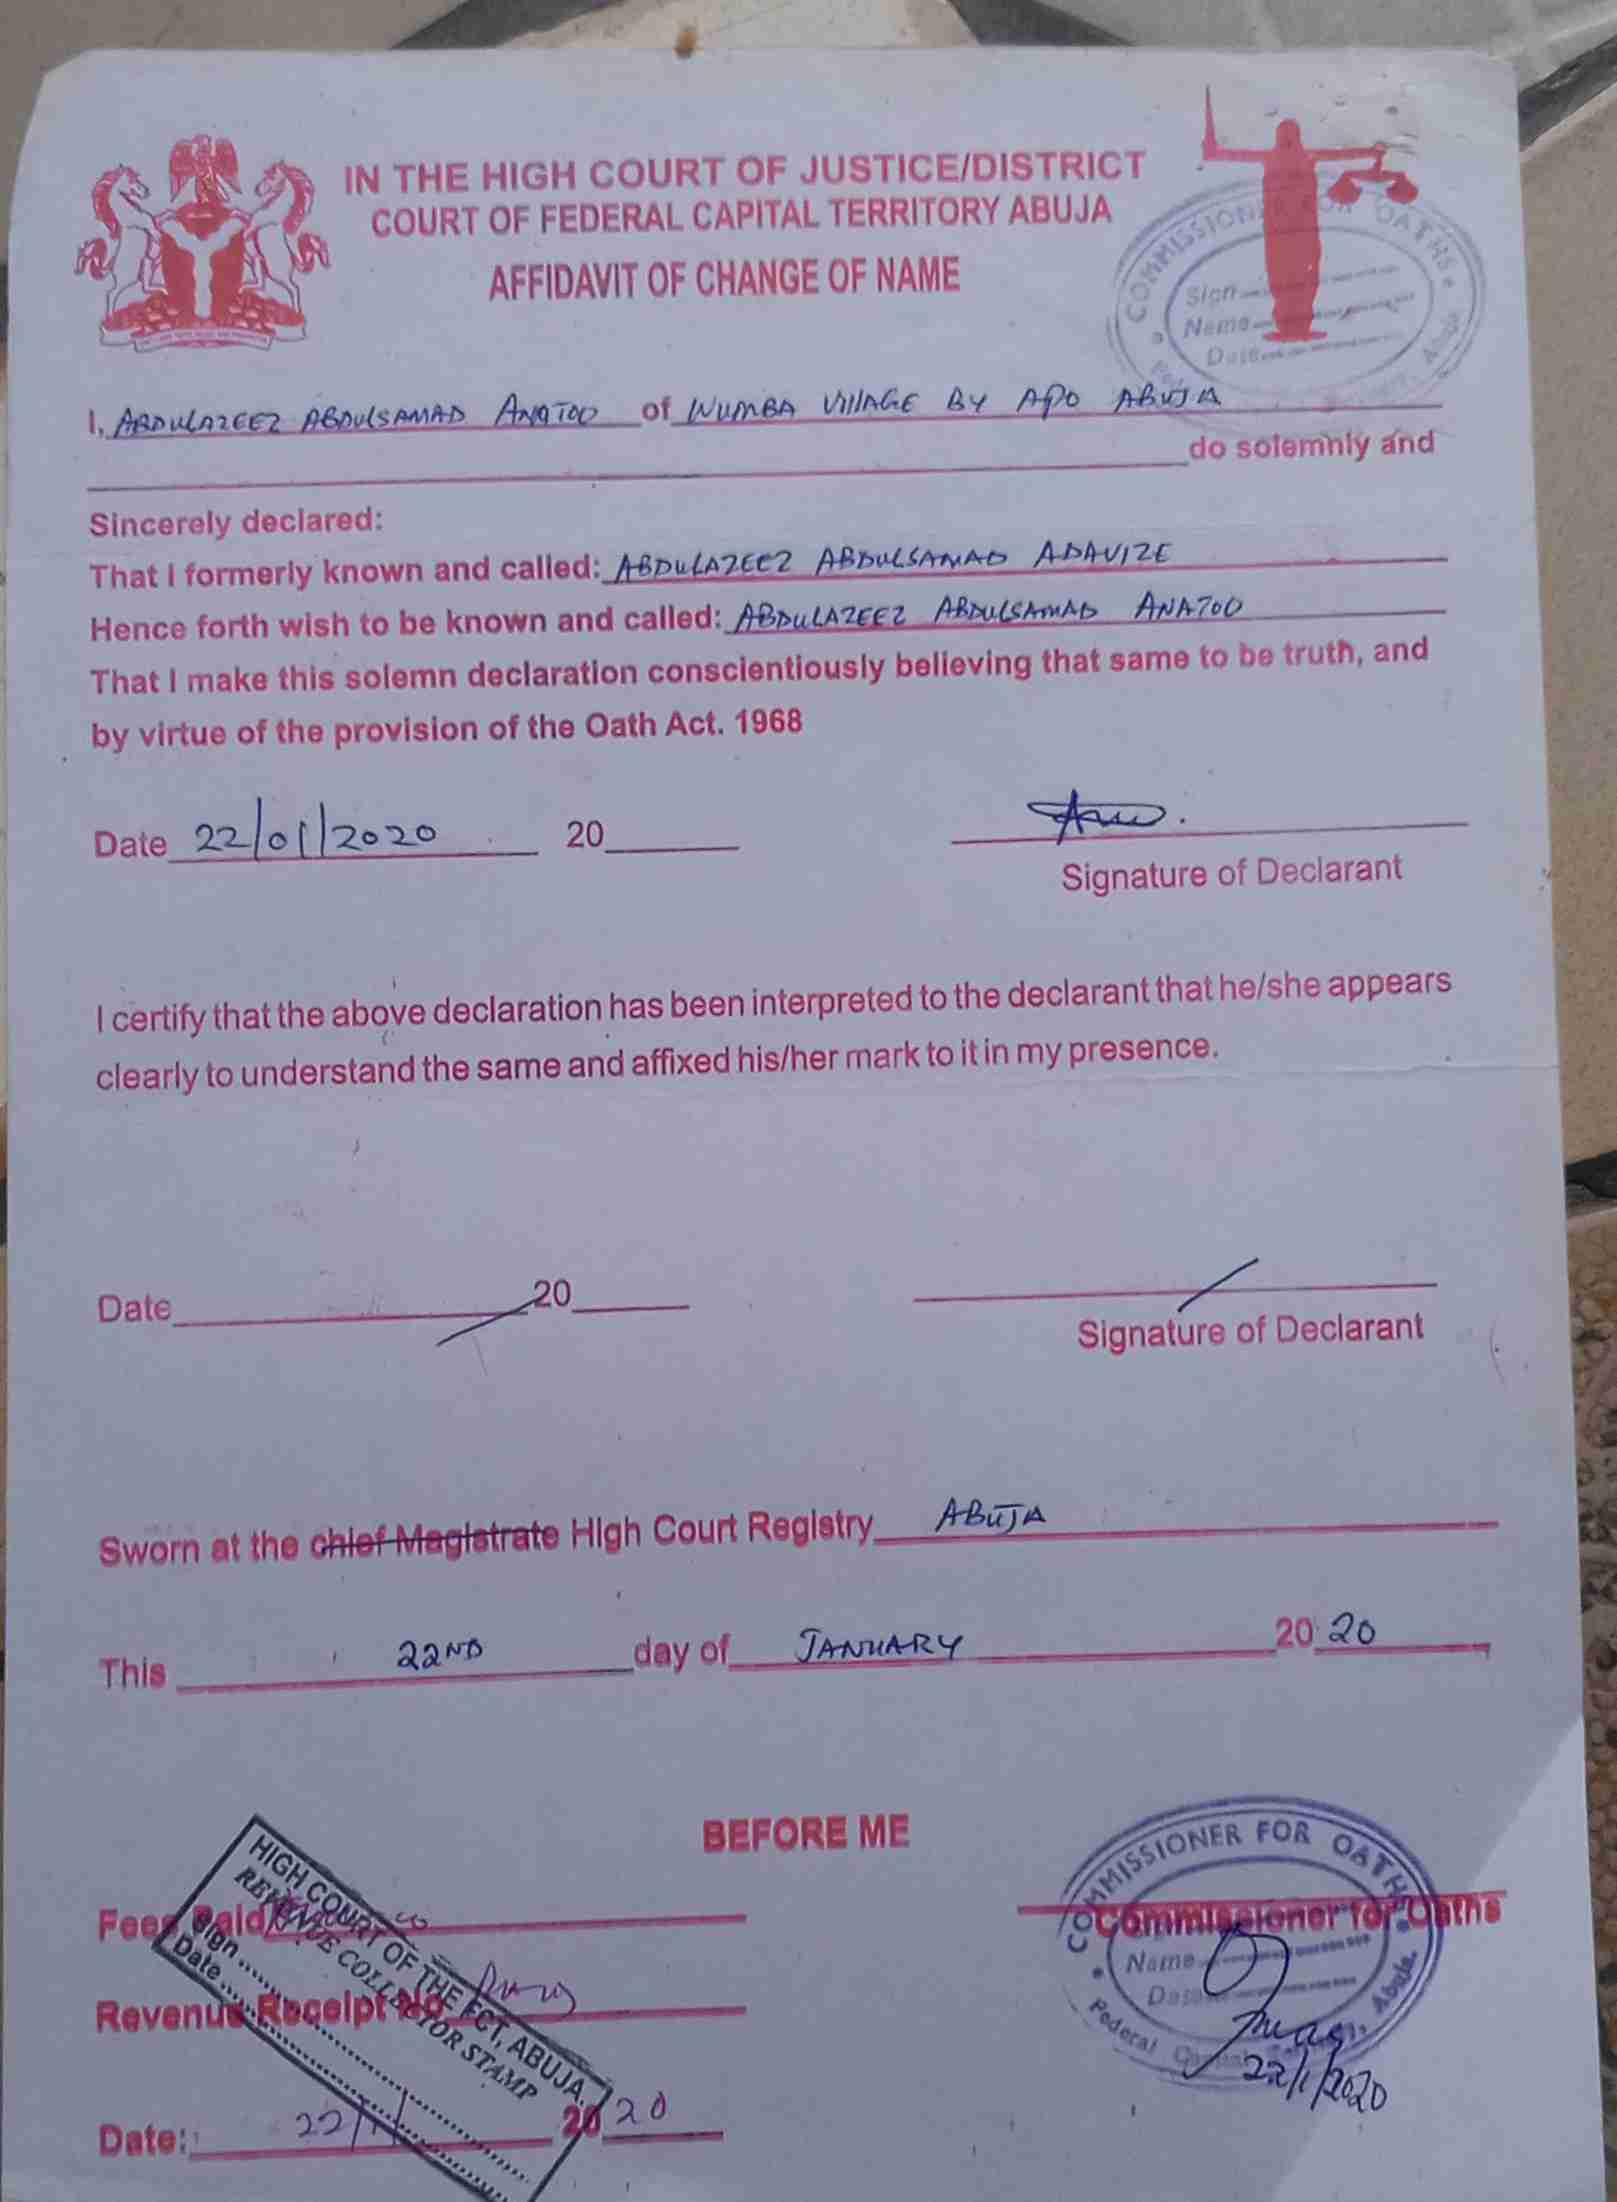 IN THE HIGH COURT OF JUSTICE/DISTRICT
COURT OF FEDERAL CAPITAL TERRITORY ABUJA
AFFIDAVIT OF CHANGE OF NAME
COMMISSIONER FOR OATHS
Sign
Name
Date
I, ABDULAZEEZ ABDULSAMAD ANATOO of WUMBA VILLAGE BY APO ABUJA
do solemnly and
Sincerely declared:
That I formerly known and called: ABDULAZEEZ ABDULSAMAD ADAVIZE
Hence forth wish to be known and called: ABDULAZEEZ ABDULSAMAD ANATOO
That I make this solemn declaration conscientiously believing that same to be truth, and
by virtue of the provision of the Oath Act. 1968
Date 22/01/2020 20
Signature of Declarant
I certify that the above declaration has been interpreted to the declarant that he/she appears
clearly to understand the same and affixed his/her mark to it in my presence.
Date 20
Signature of Declarant
Sworn at the chief Magistrate High Court Registry ABUJA
This 22ND day of JANUARY 20 20
BEFORE ME
Fees Paid
Revenue Receipt No
Date: 22/1/ 20 20
HIGH COURT OF THE FCT, ABUJA.
REVENUE COLLECTOR STAMP
Sign
Date
COMMISSIONER FOR OATHS
Commissioner for Oaths
Name
Date
Federal Capital Abuja.
22/1/2020